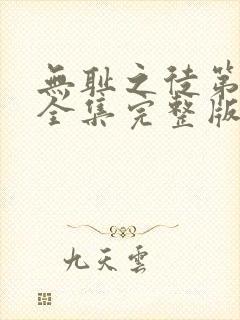 無耻之徒第
全集完整版
九天雲